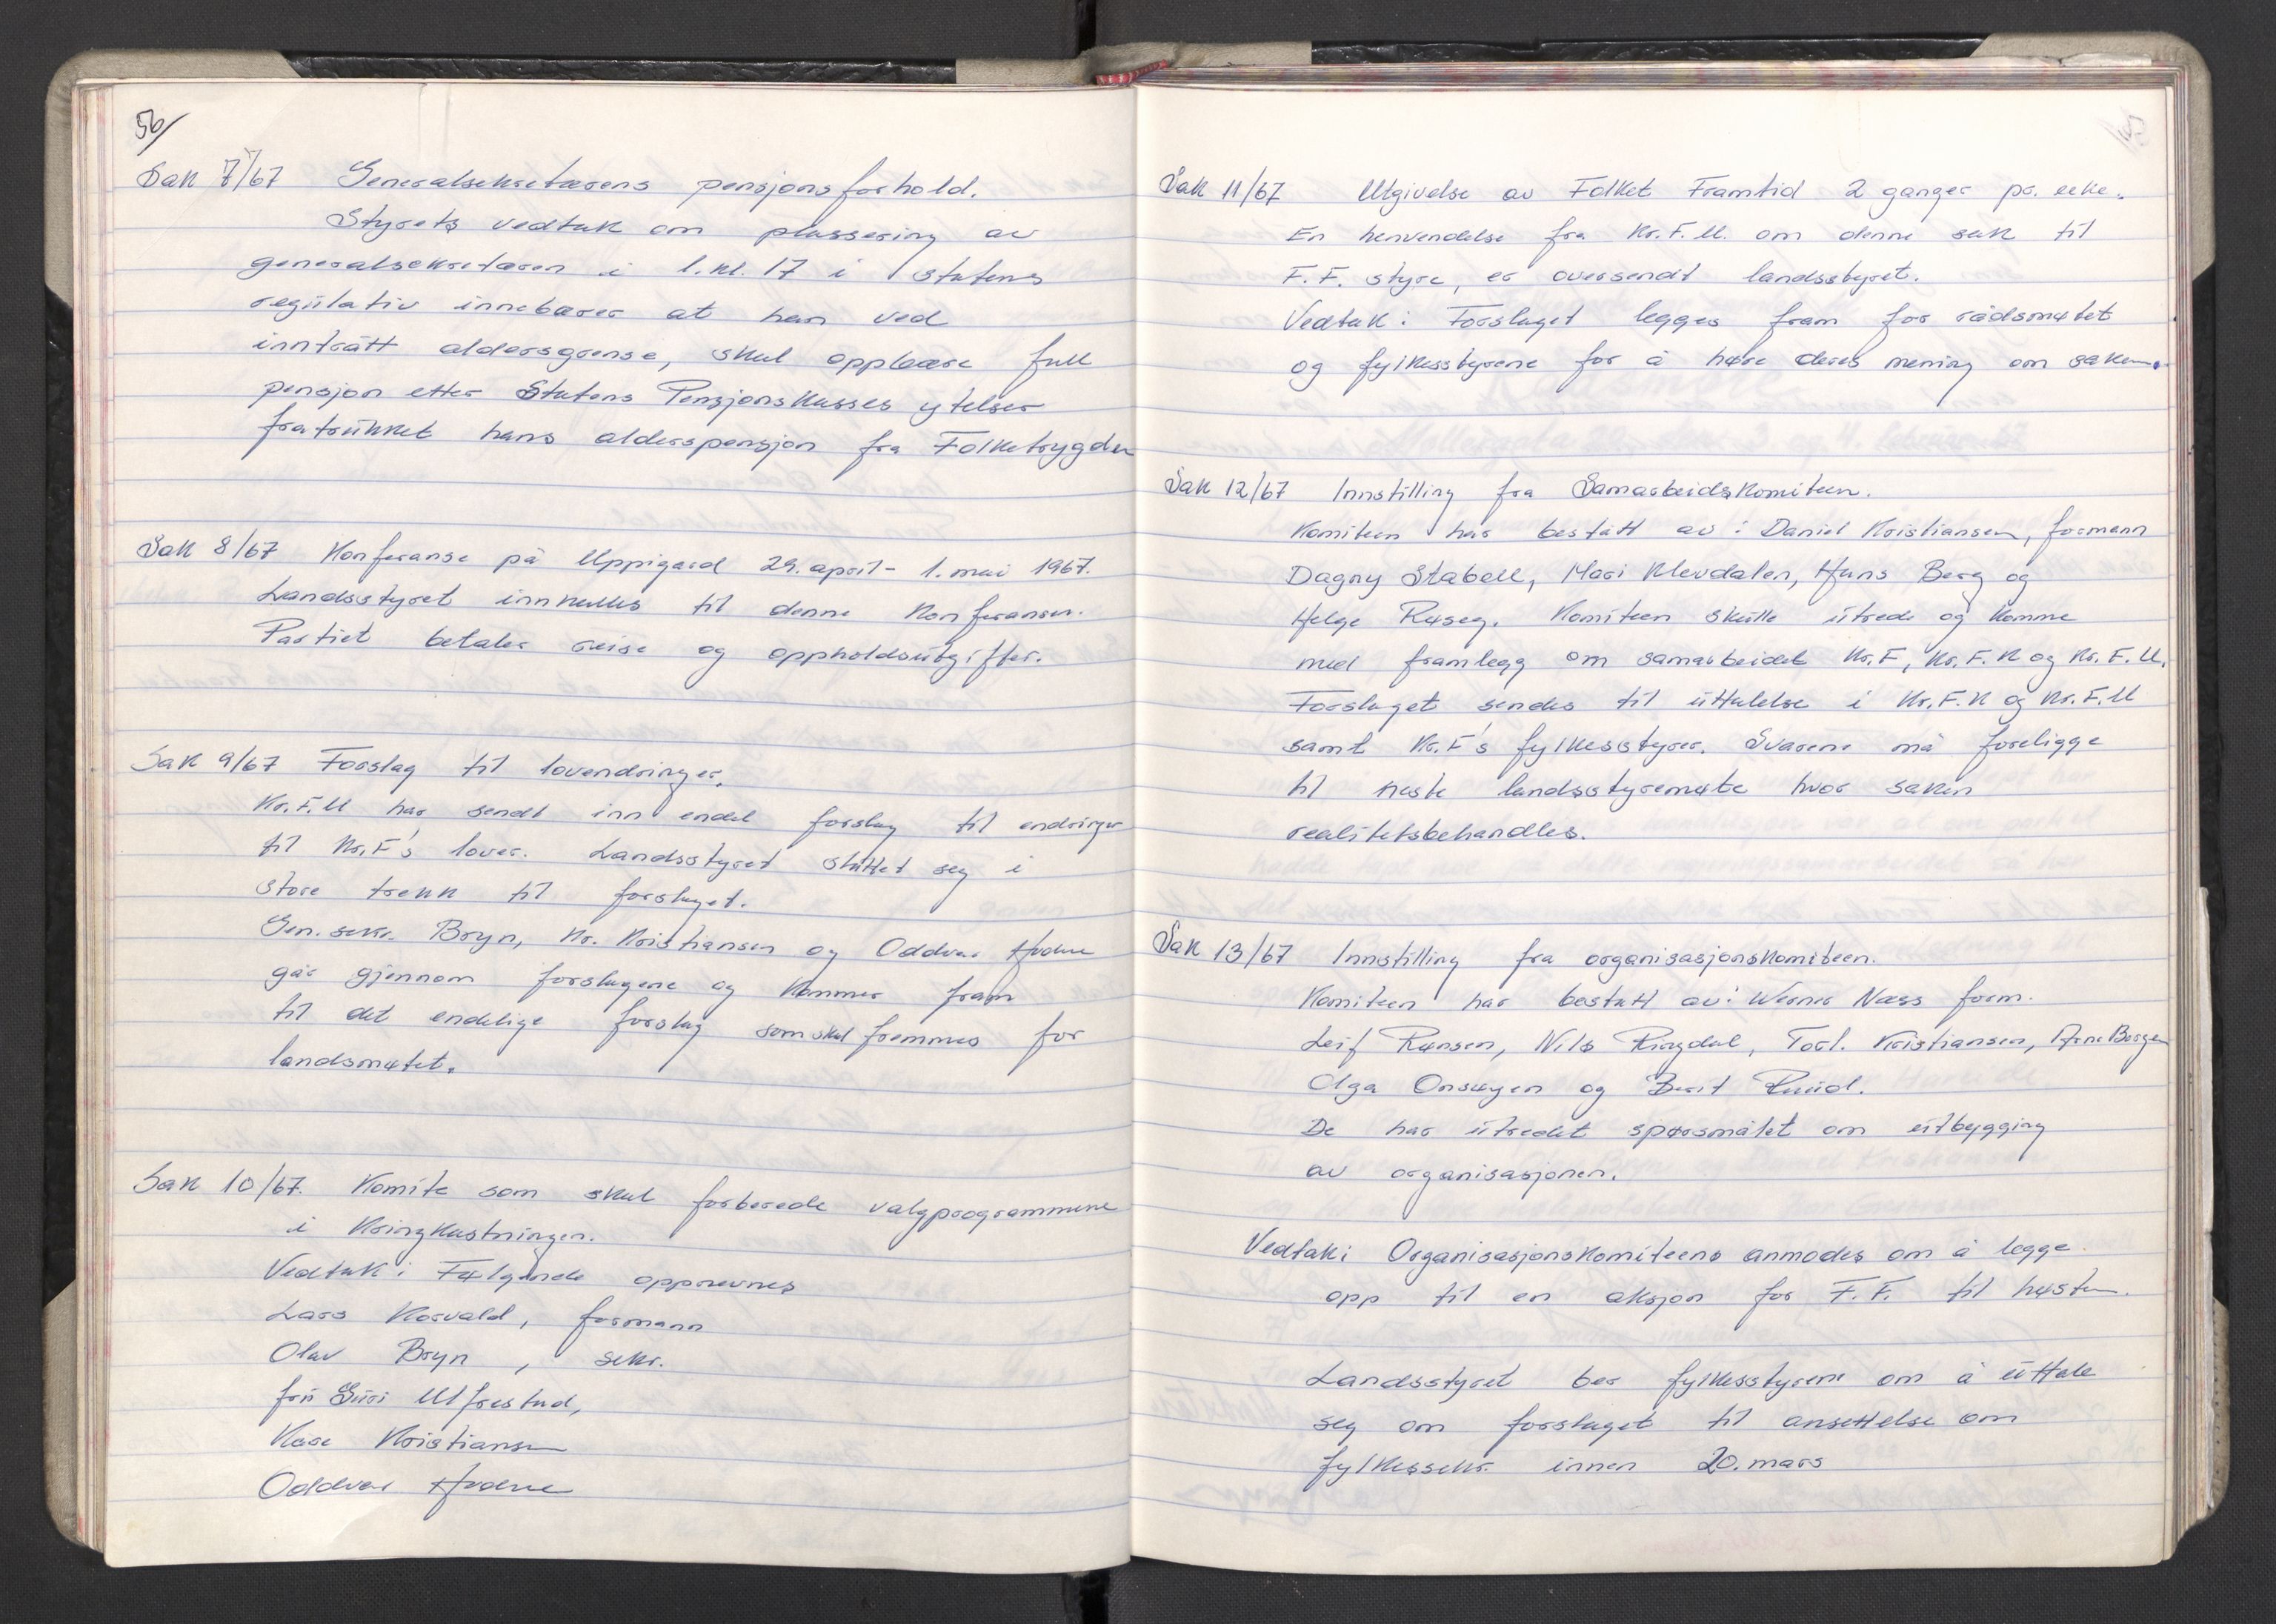 56/
Sak 7/67 Generalsekretærens pensjonsforhold.
Styrets vedtak om plassering av
generalsekretæren i l.kl. 17 i statens
regulativ innebærer at han ved
inntrått aldersgrense, skal oppbære full
pensjon etter Statens Pensjonskasses ytelser
fratrukket hans alderspensjon fra Folketrygden
Sak 8/67 Konferanse på Uppigard 29. april - 1. mai 1967.
Landsstyret innkalles til denne konferansen.
Partiet betaler reise og oppholdsutgifter.
Sak 9/67 Forslag til lovendringer.
Kr.F.U har sendt inn endel forslag til endringer
til Kr.F's lover. Landsstyret sluttet seg i
store trekk til forslaget.
Gen. sekr. Bryn, Kr. Kristiansen og Oddvar Hvidsten
går gjennom forslagene og kommer fram
til det endelige forslag som skal fremmes for
landsmøtet.
Sak 10/67. Komite som skal forberede valgprogrammene
i Kringkastningen.
Vedtak: Følgende oppnevnes
Lars Korvald, formann
Olav Bryn, sekr.
fru Guri Ulfrestad,
Kåre Kristiansen
Oddvar
Sak 11/67 Utgivelse av Folket Framtid 2 ganger pr. uke.
En henvendelse fra Kr.F.U. om denne sak til
F.F. styre, er oversendt landsstyret.
Vedtak: Forslaget legges fram for rådsmøtet
og fylkesstyrene for å høre deres mening om saken.
Sak 12/67 Innstilling fra Samarbeidskomiteen.
Komiteen har bestått av: Daniel Kristiansen, formann
Dagny Stabell, Mari Klevdalen, Hans Berg og
Helge Røseg. Komiteen skulle utrede og komme
med framlegg om samarbeidet Kr.F, Kr.F.K og Kr.F.U.
Forslaget sendes til uttalelse i Kr.F.K og Kr.F.U
samt Kr.F's fylkesstyrer. Svarene må foreligge
til neste landsstyremøte hvor saken
realitetsbehandles.
Sak 13/67 Innstilling fra organisasjonskomiteen.
Komiteen har bestått av: Werner Næss form.
Leif Rønsen, Nils Ringdal, Torl. Kristiansen, Arne Borgen
Olga Onsøyen og Berit Ruud.
De har utredet spørsmålet om utbygging
av organisasjonen.
Vedtak: Organisasjonskomiteens anmodes om å legge
opp til en aksjon for F.F. til høsten.
Landsstyret ber fylkesstyrene om å uttale
seg om forslaget til ansettelse om
fylkessekr. innen 20. mars